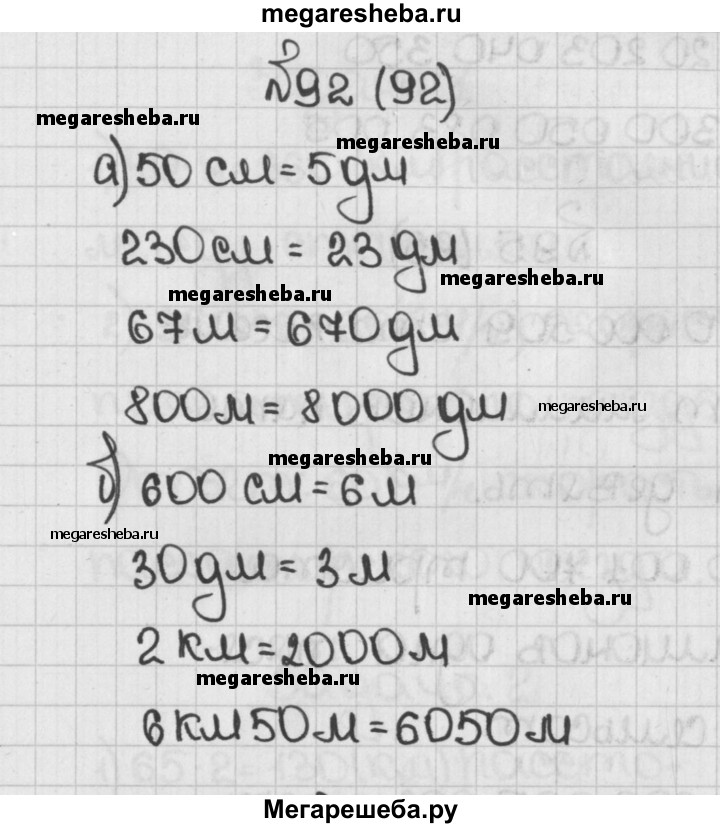 megaresheba.ru
№92 (92)
megaresheba.ru
megaresheba.ru
а) 50 см = 5 дм
230 см = 23 дм
megaresheba.ru
megaresheba.ru
67 м = 670 дм
800 м = 8000 дм
megaresheba.ru
megaresheba.ru
б) 600 см = 6 м
megaresheba.ru
30 дм = 3 м
megaresheba.ru
2 км = 2000 м
megaresheba.ru
6 км 50 м = 6050 м
Мегарешеба.ру